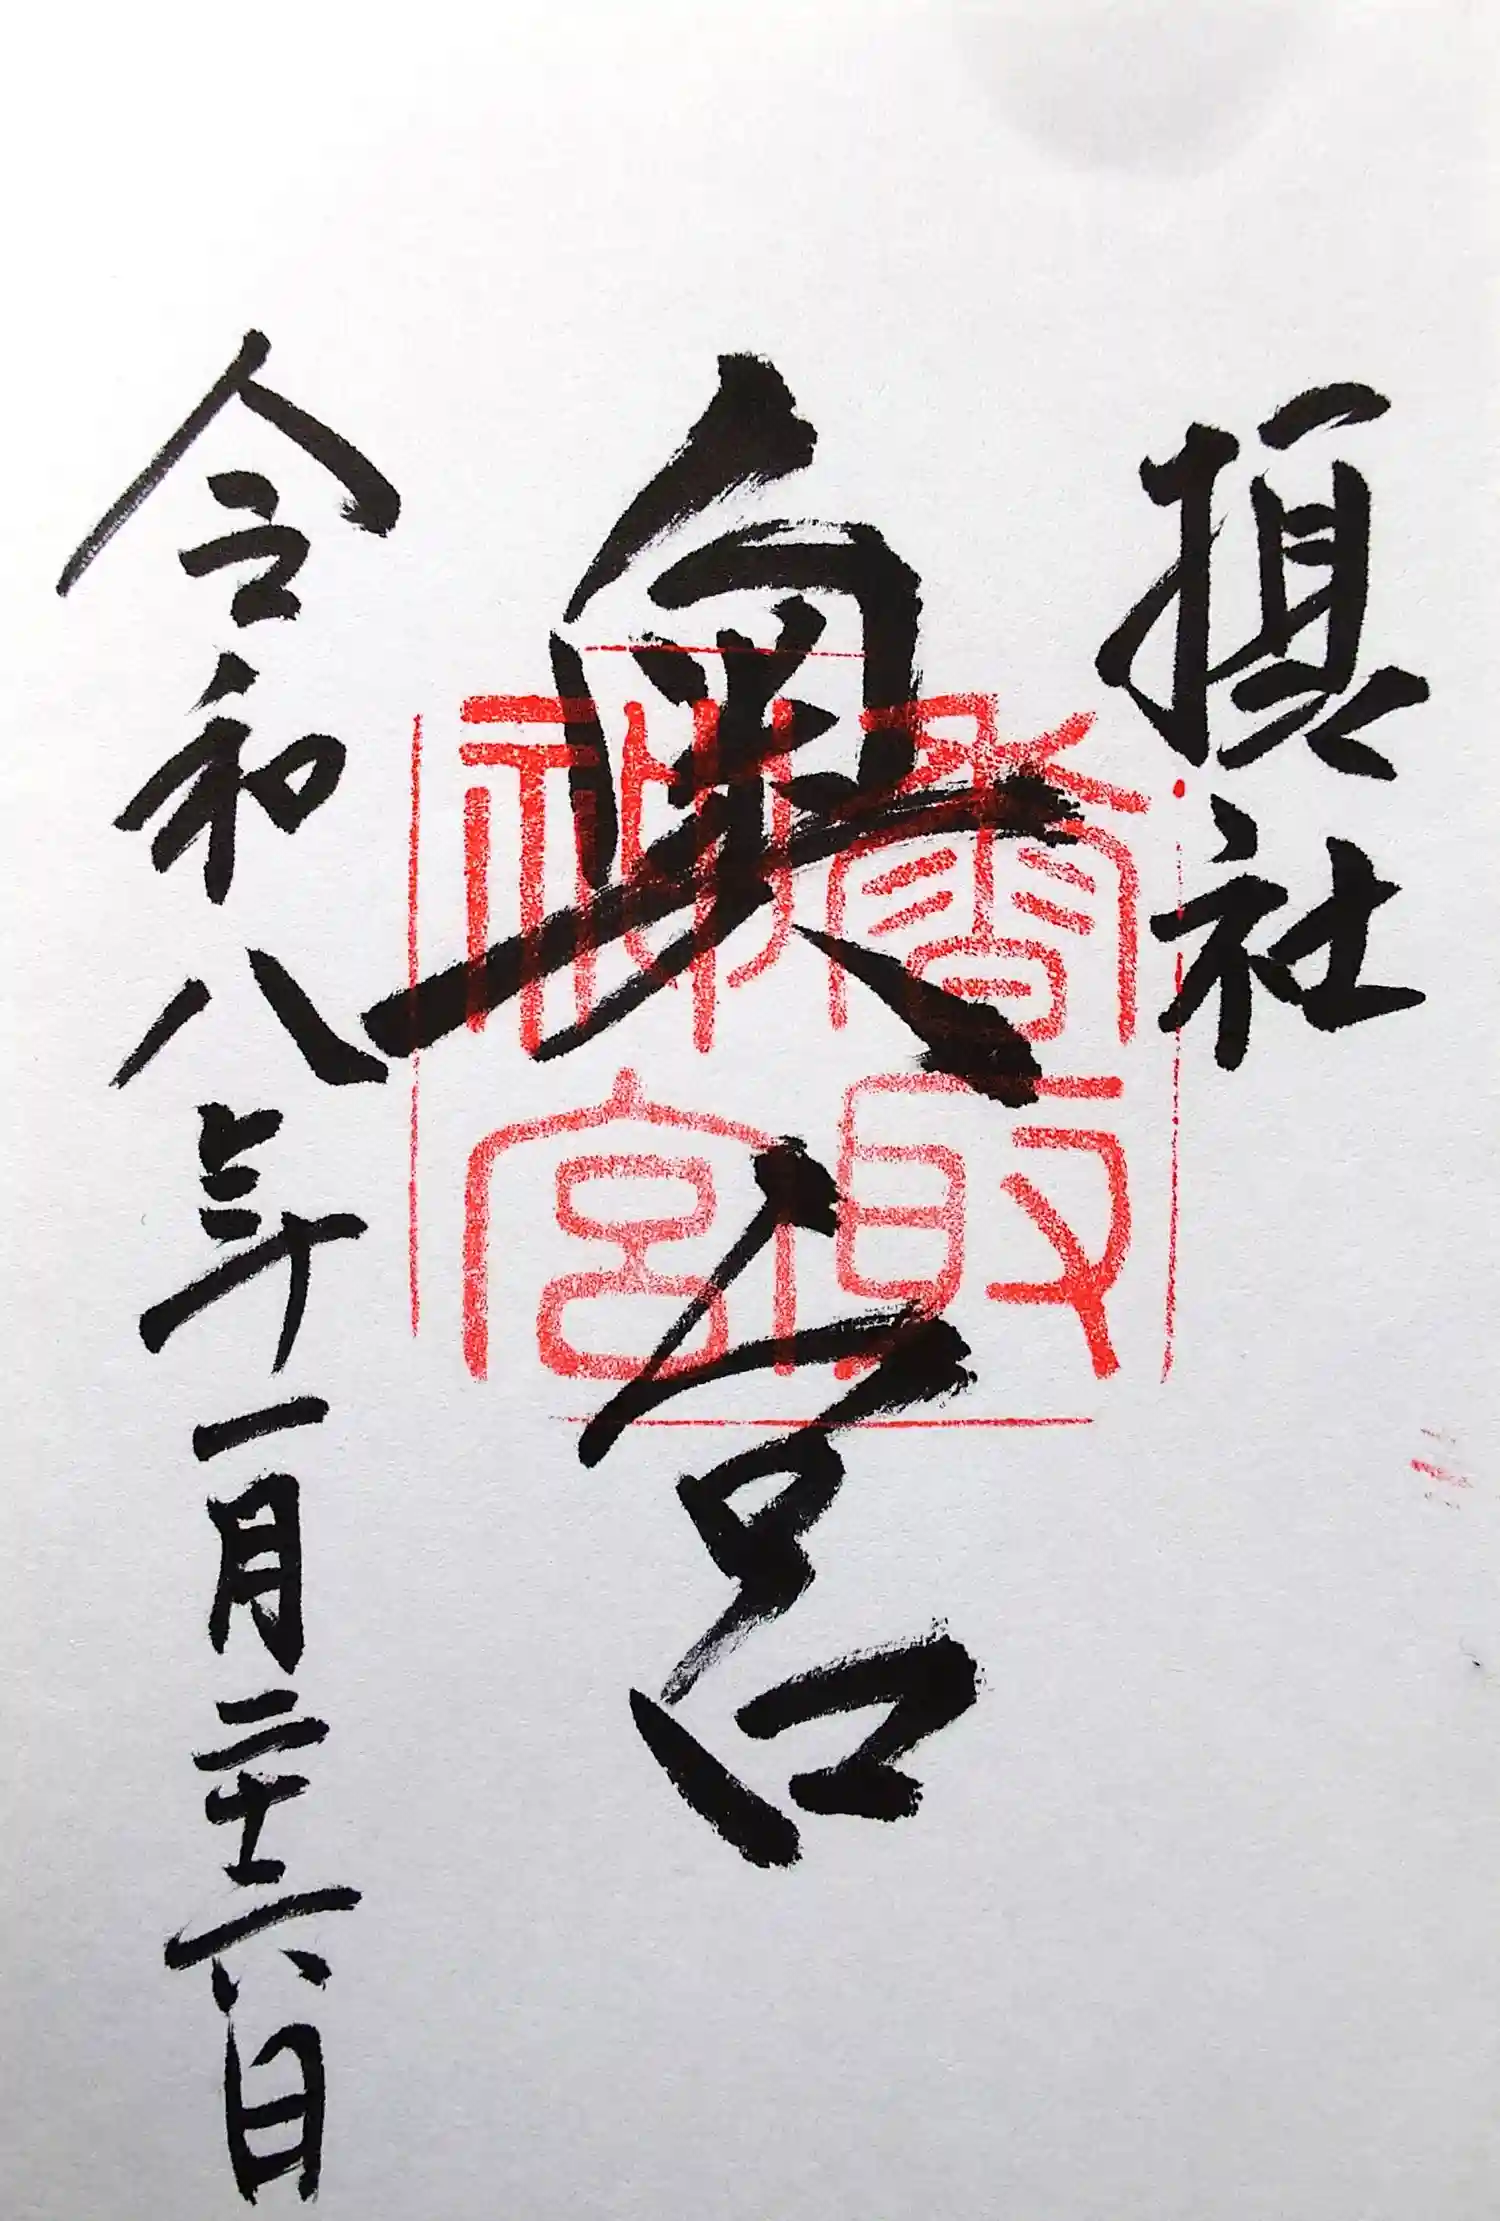 摂社
奥宮
令和八年一月二十六日
香取
神宮